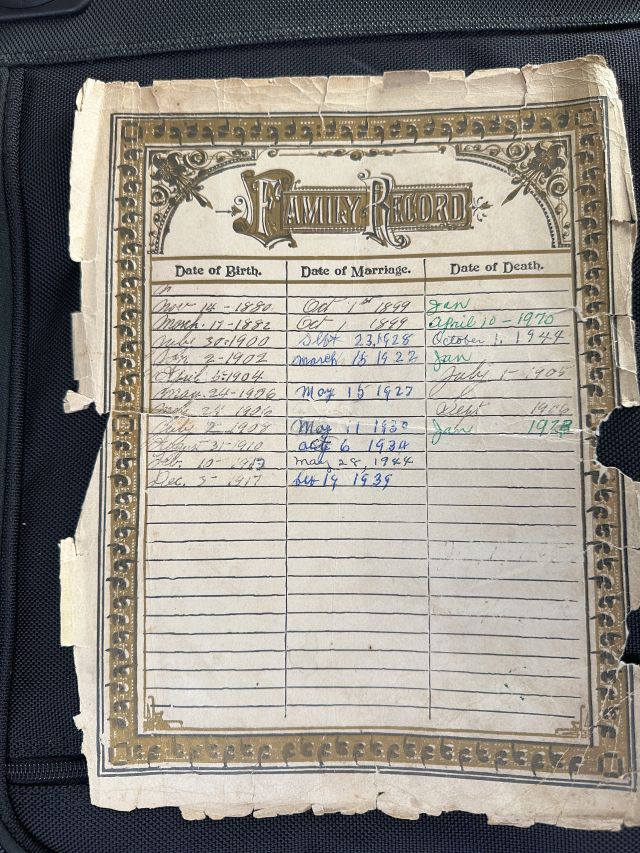 FAMILY RECORD
Date of Birth. Date of Marriage. Date of Death.
Nov 14 - 1880 Oct 1st 1899 Jan
March 17 - 1882 Oct 1 1899 April 10 - 1970
July 30 - 1900 Sept 23, 1928 October 1, 1944
Jan 2 - 1902 march 18 1922 Jan
April 5 1904 July 1 - 1905
24 - 1906 May 15 1927
24 1906 Sept 1906
2 - 1908 May 11 1930 Jan
31 - 1910 6 1934
Feb. 10 - may 28, 1944
Dec. 3 - 1917 19 1939